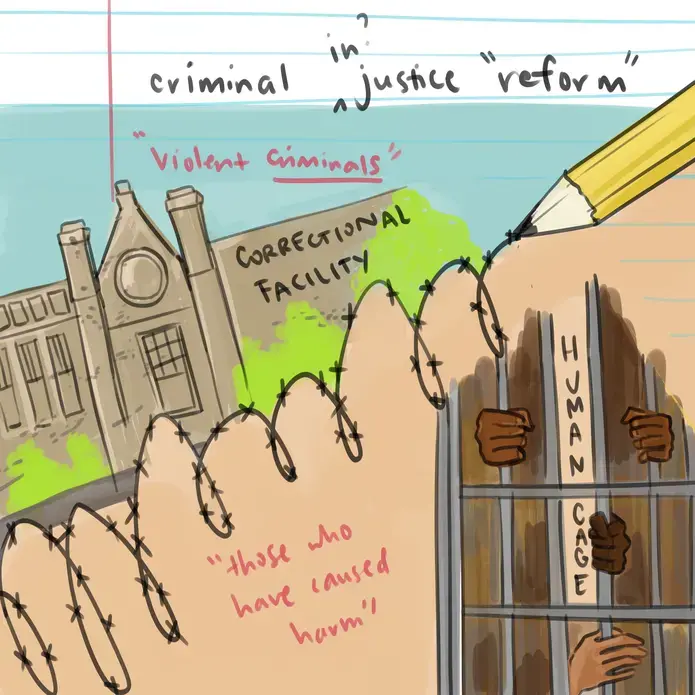 in?
criminal ^ justice "reform"
"violent criminals"
CORRECTIONAL
FACILITY
HUMAN CAGE
"those who
have caused
harm"